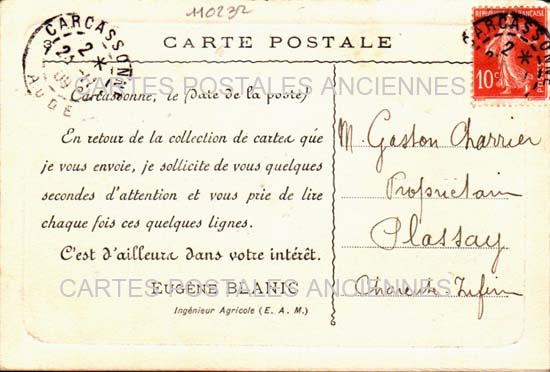 110232
CARCASSONNE
AUDE
CARTE POSTALE
REPUBLIQUE FRANÇAISE
10c
POSTES
CARTES POSTALES ANCIENNES
Carcassonne, le (Date de la poste)
En retour de la collection de cartes que
je vous envoie, je sollicite de vous quelques
secondes d'attention et vous prie de lire
chaque fois ces quelques lignes.
C'est d'ailleurs dans votre intérêt.
EUGÈNE BLANIC
Ingénieur Agricole (E. A. M.)
CARTES POSTALES ANCIENNES
M. Gaston Charrier
Propriétaire
Plassay
Charente Infre